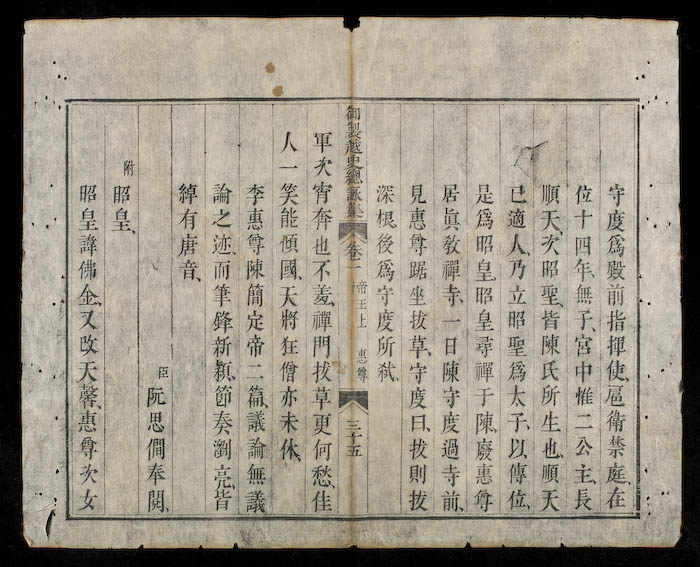 守度爲殿前指揮使、扈衛禁庭、在
位十四年、無子、宮中惟二公主、長
順天、次昭聖、皆陳氏所生也、順天
已適人、乃立昭聖爲太子、以傳位、
是爲昭皇、昭皇尋禪于陳、廢惠尊
居眞敎禪寺、一日陳守度過寺前、
見惠尊踞坐拔草、守度曰、拔則拔
深根、後爲守度所弒、
御製越史總詠集 卷一 帝王上 惠尊 三十五
軍次宵奔也不羞、禪門拔草更何愁、佳
人一笑能傾國、天將狂僧亦未休、
李惠尊陳簡定帝二篇、議論無議
論之迹、而筆鋒新穎、節奏瀏亮、皆
綽有唐音、
臣阮思僩奉閱、
附昭皇、
昭皇諱佛金、又改天馨、惠尊次女